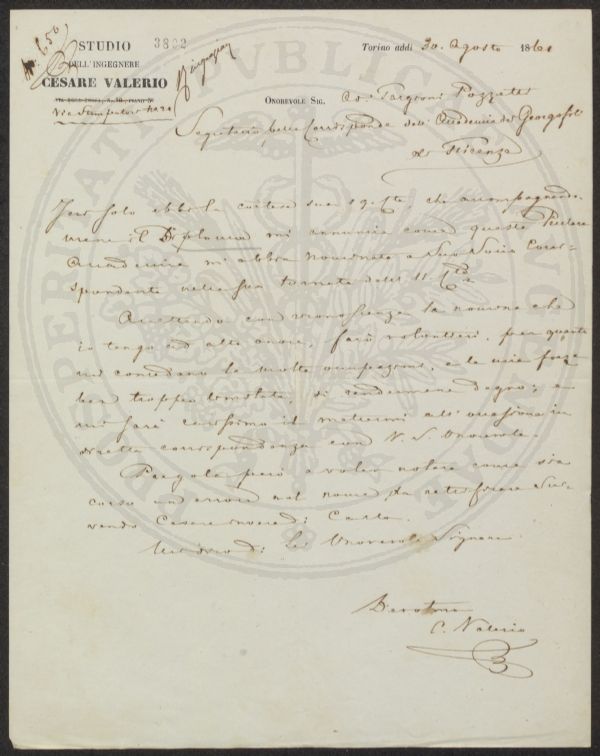 N. 650
STUDIO 3802
DELL'INGEGNERE
CESARE VALERIO
Via
Ringraziam
Torino addì 20. Agosto 1861
ONOREVOLE SIG. Ad. Targioni Tozzetti
Segretario delle Corrispondenze dell' Accademia dei Georgofili
di Firenze
Ieri solo ebbi la cortese sua che accompagnando
il Diploma mi annuncia come questa
Accademia mi abbia nominato a Suo Socio Corri-
spondente nella sua tornata delli 11
Accettando con riconoscenza la nomina che
io tengo ad alto onore, farò volentieri, per quanto
mi concedano le molte occupazioni, e le mie forze
ben troppo limitate, di rendermene degno; e
mi sarà carissimo il mettermi all' occasione in
diretta corrispondenza con V. S. Onorevole.
Pregola però a voler notare come sia
corso un errore nel nome, da rettificare
Cesare invece di Carlo.
di Lei Onorevole Signore
Devotmo
C. Valerio
PROSPERITATI PUBLICAE AUGENDAE